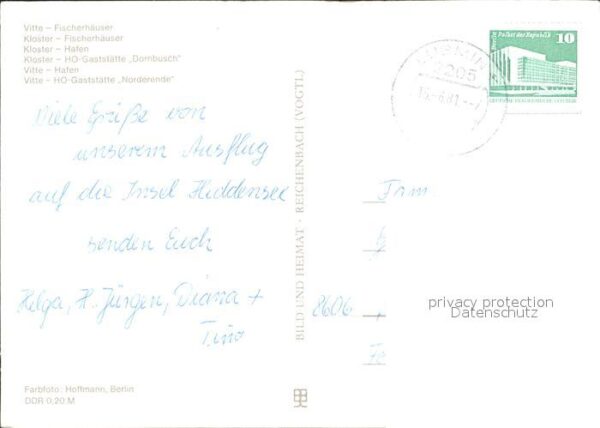 Vitte – Fischerhäuser
Kloster – Fischerhäuser
Kloster – Hafen
Kloster – HO-Gaststätte „Dornbusch"
Vitte – Hafen
Vitte – HO-Gaststätte "Norderende"
Viele Grüße von
unserem Ausflug
auf die Insel Hiddensee
senden Euch
Helga, H. Jürgen, Diana +
Tino
Farbfoto: Hoffmann, Berlin
DDR 0,20 M
BILD UND HEIMAT · REICHENBACH (VOGTL.)
2205
Berlin Palast der Republik
10
DEUTSCHE DEMOKRATISCHE REPUBLIK
Fam
8606
privacy protection
Datenschutz